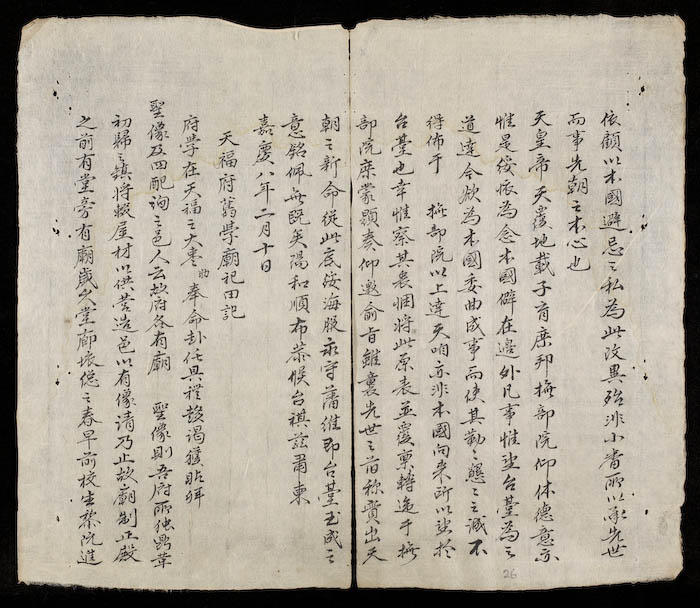 依願以本國避忌之私為此改異殊非小番所以承先世
而事先朝之本心也
天皇帝天覆地載子育庶邦撫部院仰体德意亦
惟是綏懷為念本國僻在邊外凡事惟望台臺為之
道達今欲為本國委曲成事而使其勤々懇々之誠不
得佈于 撫部院以上達天咱亦非本國向來所以望於
台臺也幸惟察其衷悃將此原表並覆稟轉遞于撫
部院庶蒙題奏仰邀俞旨雖襄先世之旧称實出天
朝之新命從此底綏海服永守藩維即台臺玉成之
意銘佩無既矣陽和順布恭候台祺茲肅柬
嘉慶八年二月十日
天福府舊學廟祀田記
府學在天福之大棗助奉命赴任具禮敬謁獲貼拜
聖像及四配詢之邑人云故府各有廟 聖像則吾府所独當草
初歸之鎮將擬屋材以供營造邑以有像請乃止故廟制正殿
之前有堂旁有廟歲久堂廊垠偬之春早前校生黎阮進
26